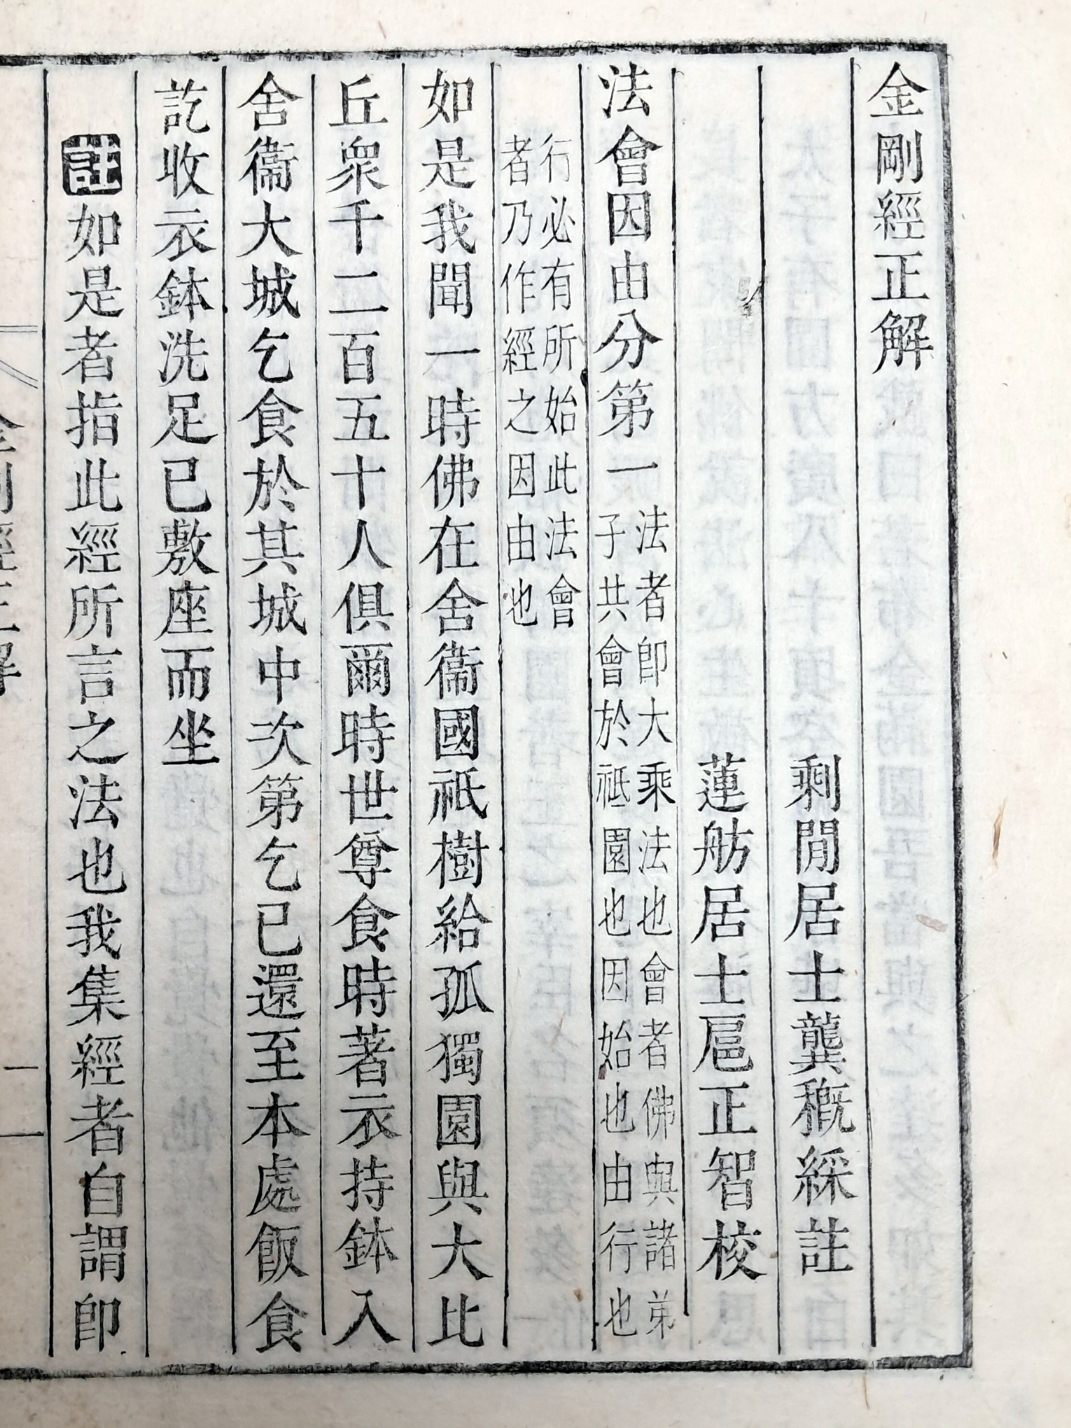 金剛經正解
剩閒居士龔穊綵註
蓮舫居士扈正智校
法會因由分第一
法者卽大乘法也會者佛與諸弟
子共會於祗園也因始也由行也
行必有所始此法會
者乃作經之因由也
如是我聞一時佛在舍衞國祇樹給孤獨園與大比
丘衆千二百五十人俱爾時世尊食時著衣持鉢入
舍衞大城乞食於其城中次第乞已還至本處飯食
訖收衣鉢洗足已敷座而坐
註如是者指此經所言之法也我集經者自謂卽